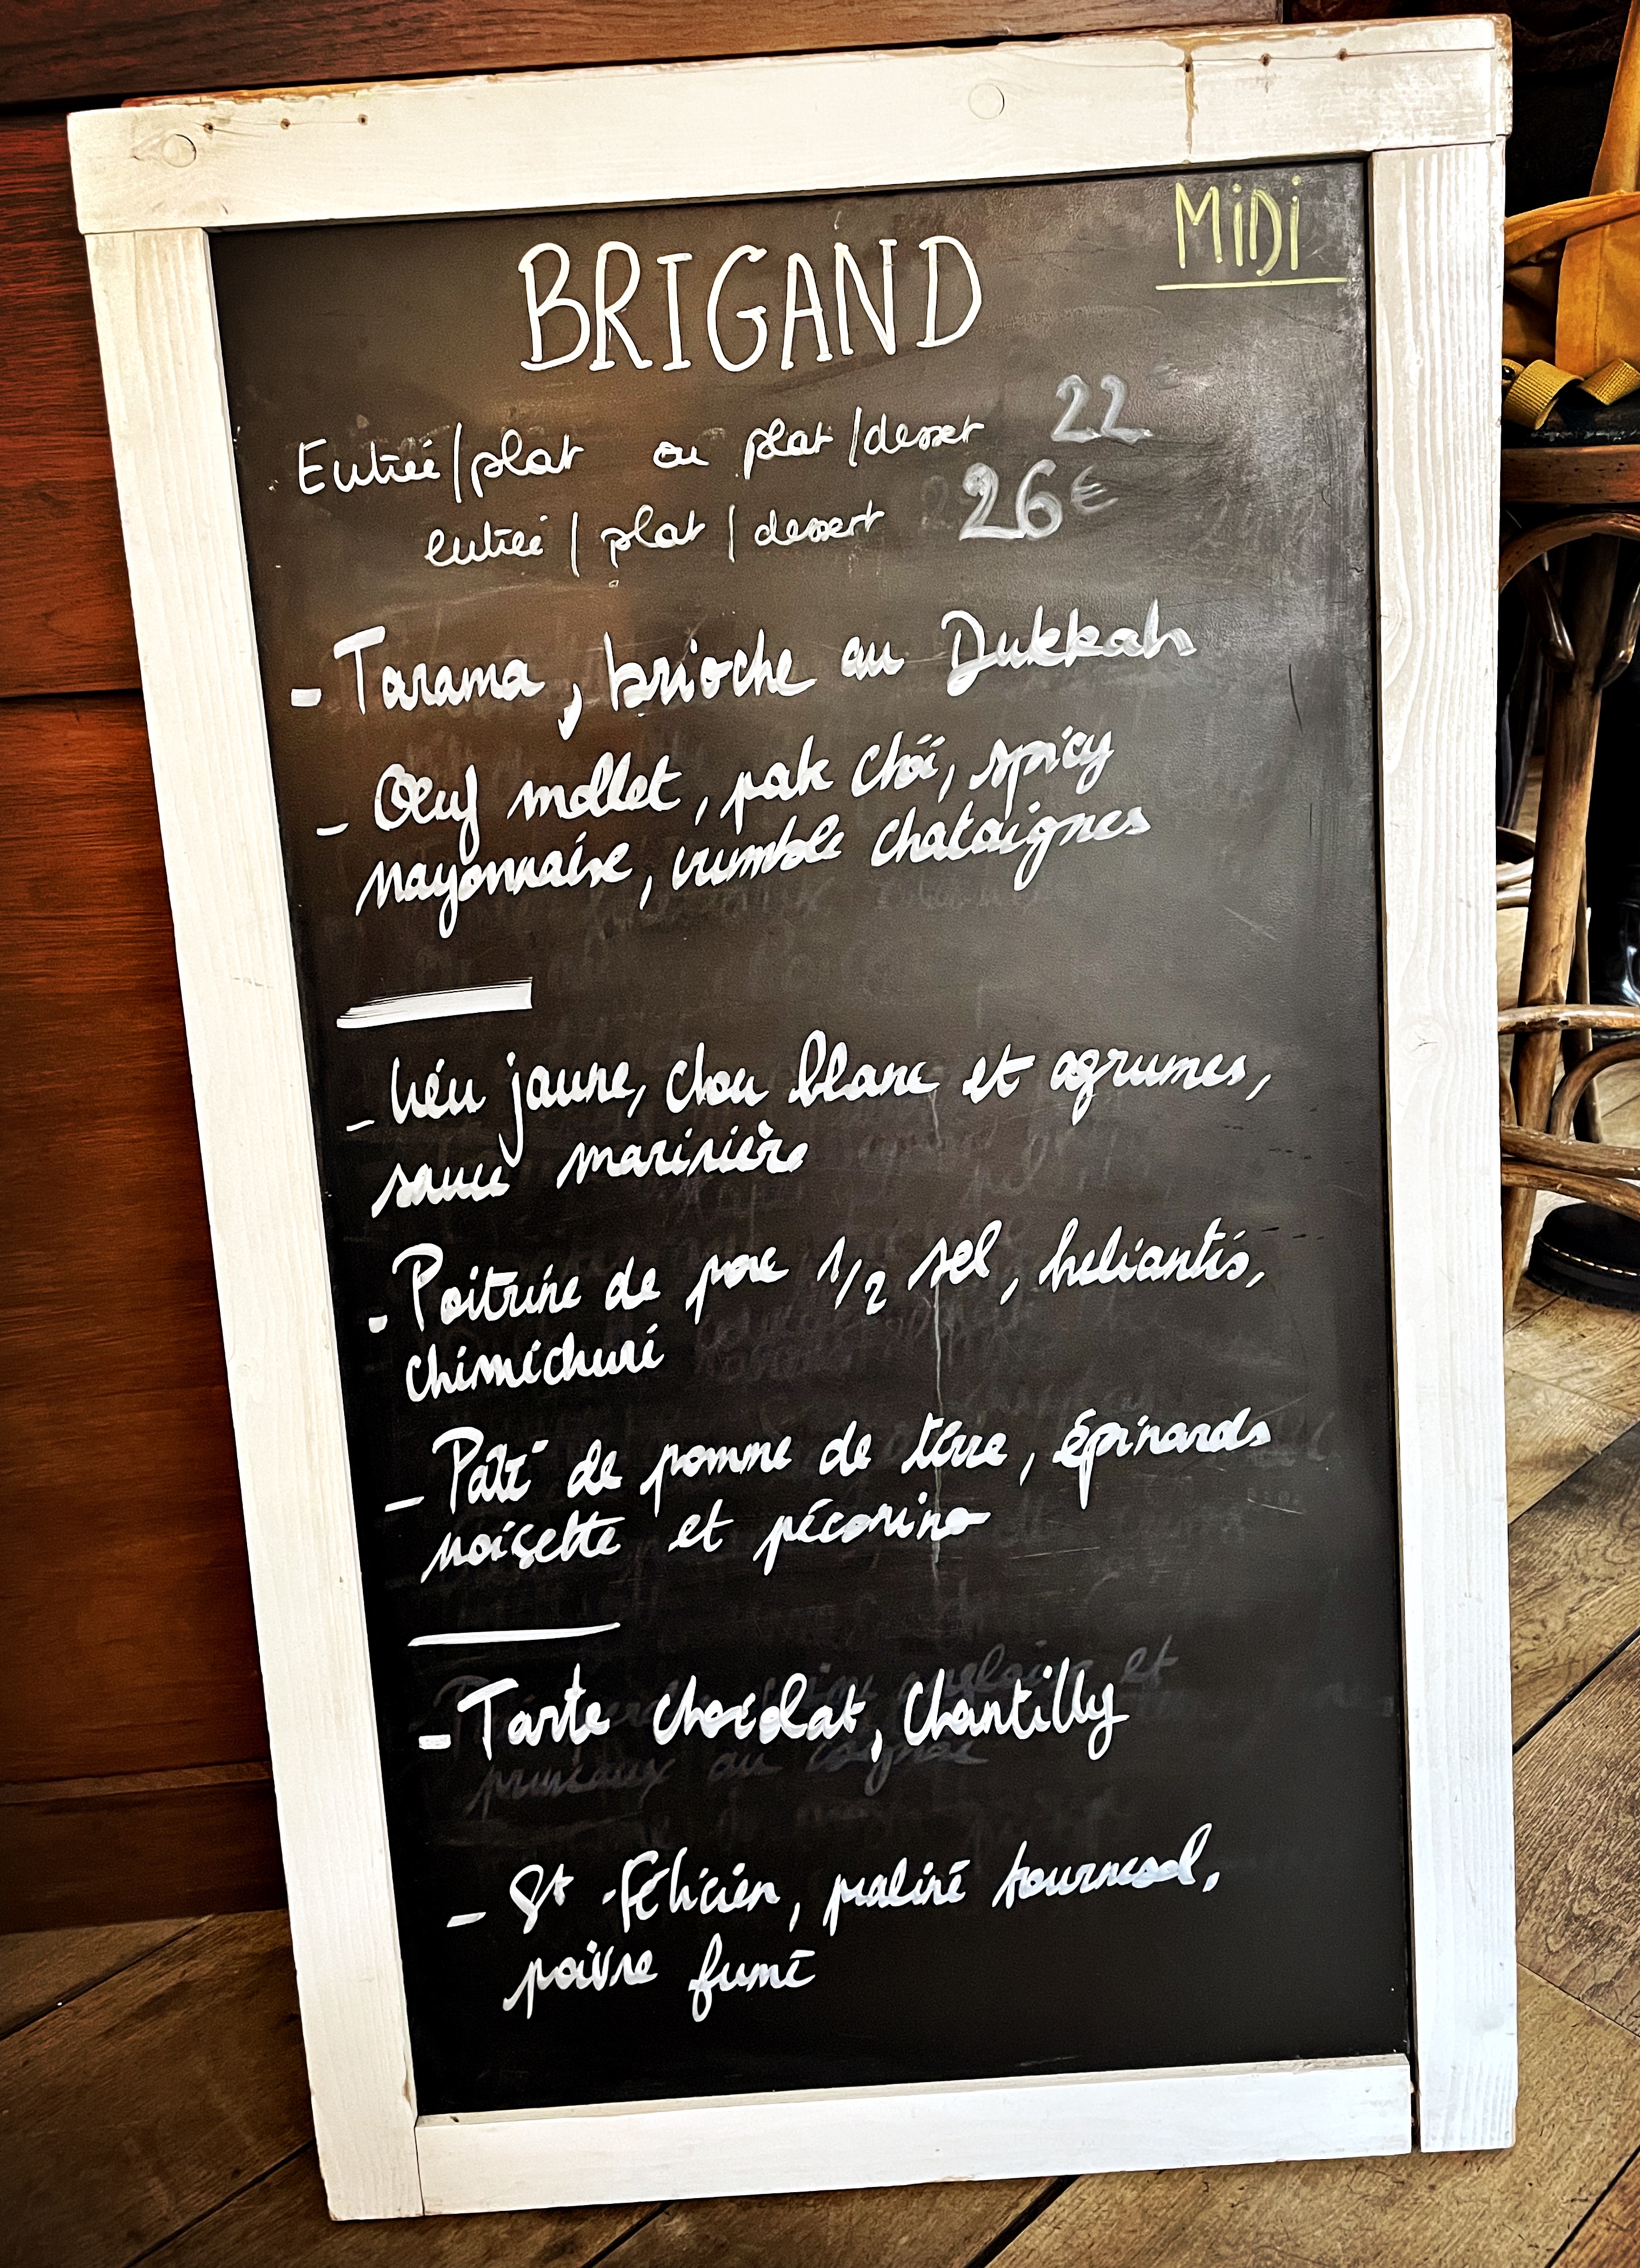 MiDi
BRIGAND
Entrée/plat ou plat/dessert 22
entrée | plat | dessert 26€
- Tarama, brioche au Dukkah
- Œuf mollet, pak choï, spicy
mayonnaise, crumble chataignes
- Lieu jaune, chou blanc et agrumes,
sauce marinière
- Poitrine de porc 1/2 sel, heliantis,
chimichuri
- Pâté de pomme de terre, épinards
noisette et pécorino
- Tarte chocolat, Chantilly
pruneaux au cognac
- St-Félicien, praliné tournesol,
poivre fumé